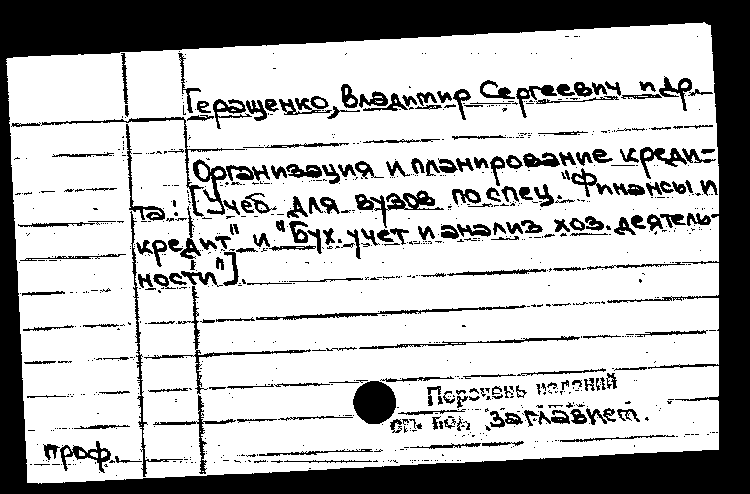 Геращенко, Владимир Сергеевич и др.
Организация и планирование креди-
та: [Учеб. для вузов по спец. "Финансы и
кредит" и "Бух. учет и анализ хоз. деятель-
ности"].
Перечень изданий
см. под заглавием.
проф.